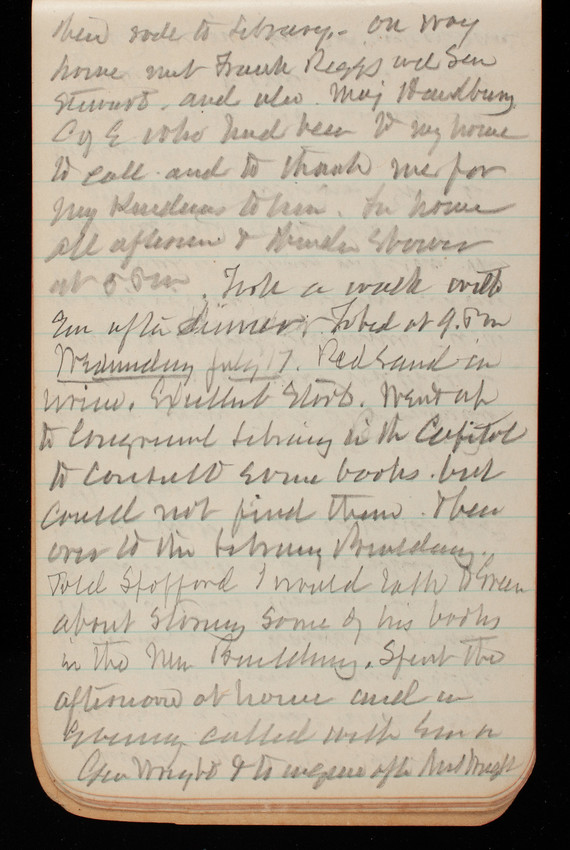 then rode to Library. On way
home met Frank Riggs and Sen
Stewart. and also Maj Handbury
C of E who had been to my home
to call and to thank me for
my kindness to him. In house
all afternoon & thunder shower
at 5 Pm. Took a walk with
Em after dinner. To bed at 9. Pm
Wednesday July 17. Red Sand in
urine. Excellent Stool. Went up
to Congressnl Library in the Capitol
to consult some books but
could not find them. Then
over to the Library Building.
Told Spofford I would talk to Green
about storing some of his books
in the New Building. Spent the
afternoon at home and in
Evening called with Em on
Gen Wright & to inquire after Mrs Wright